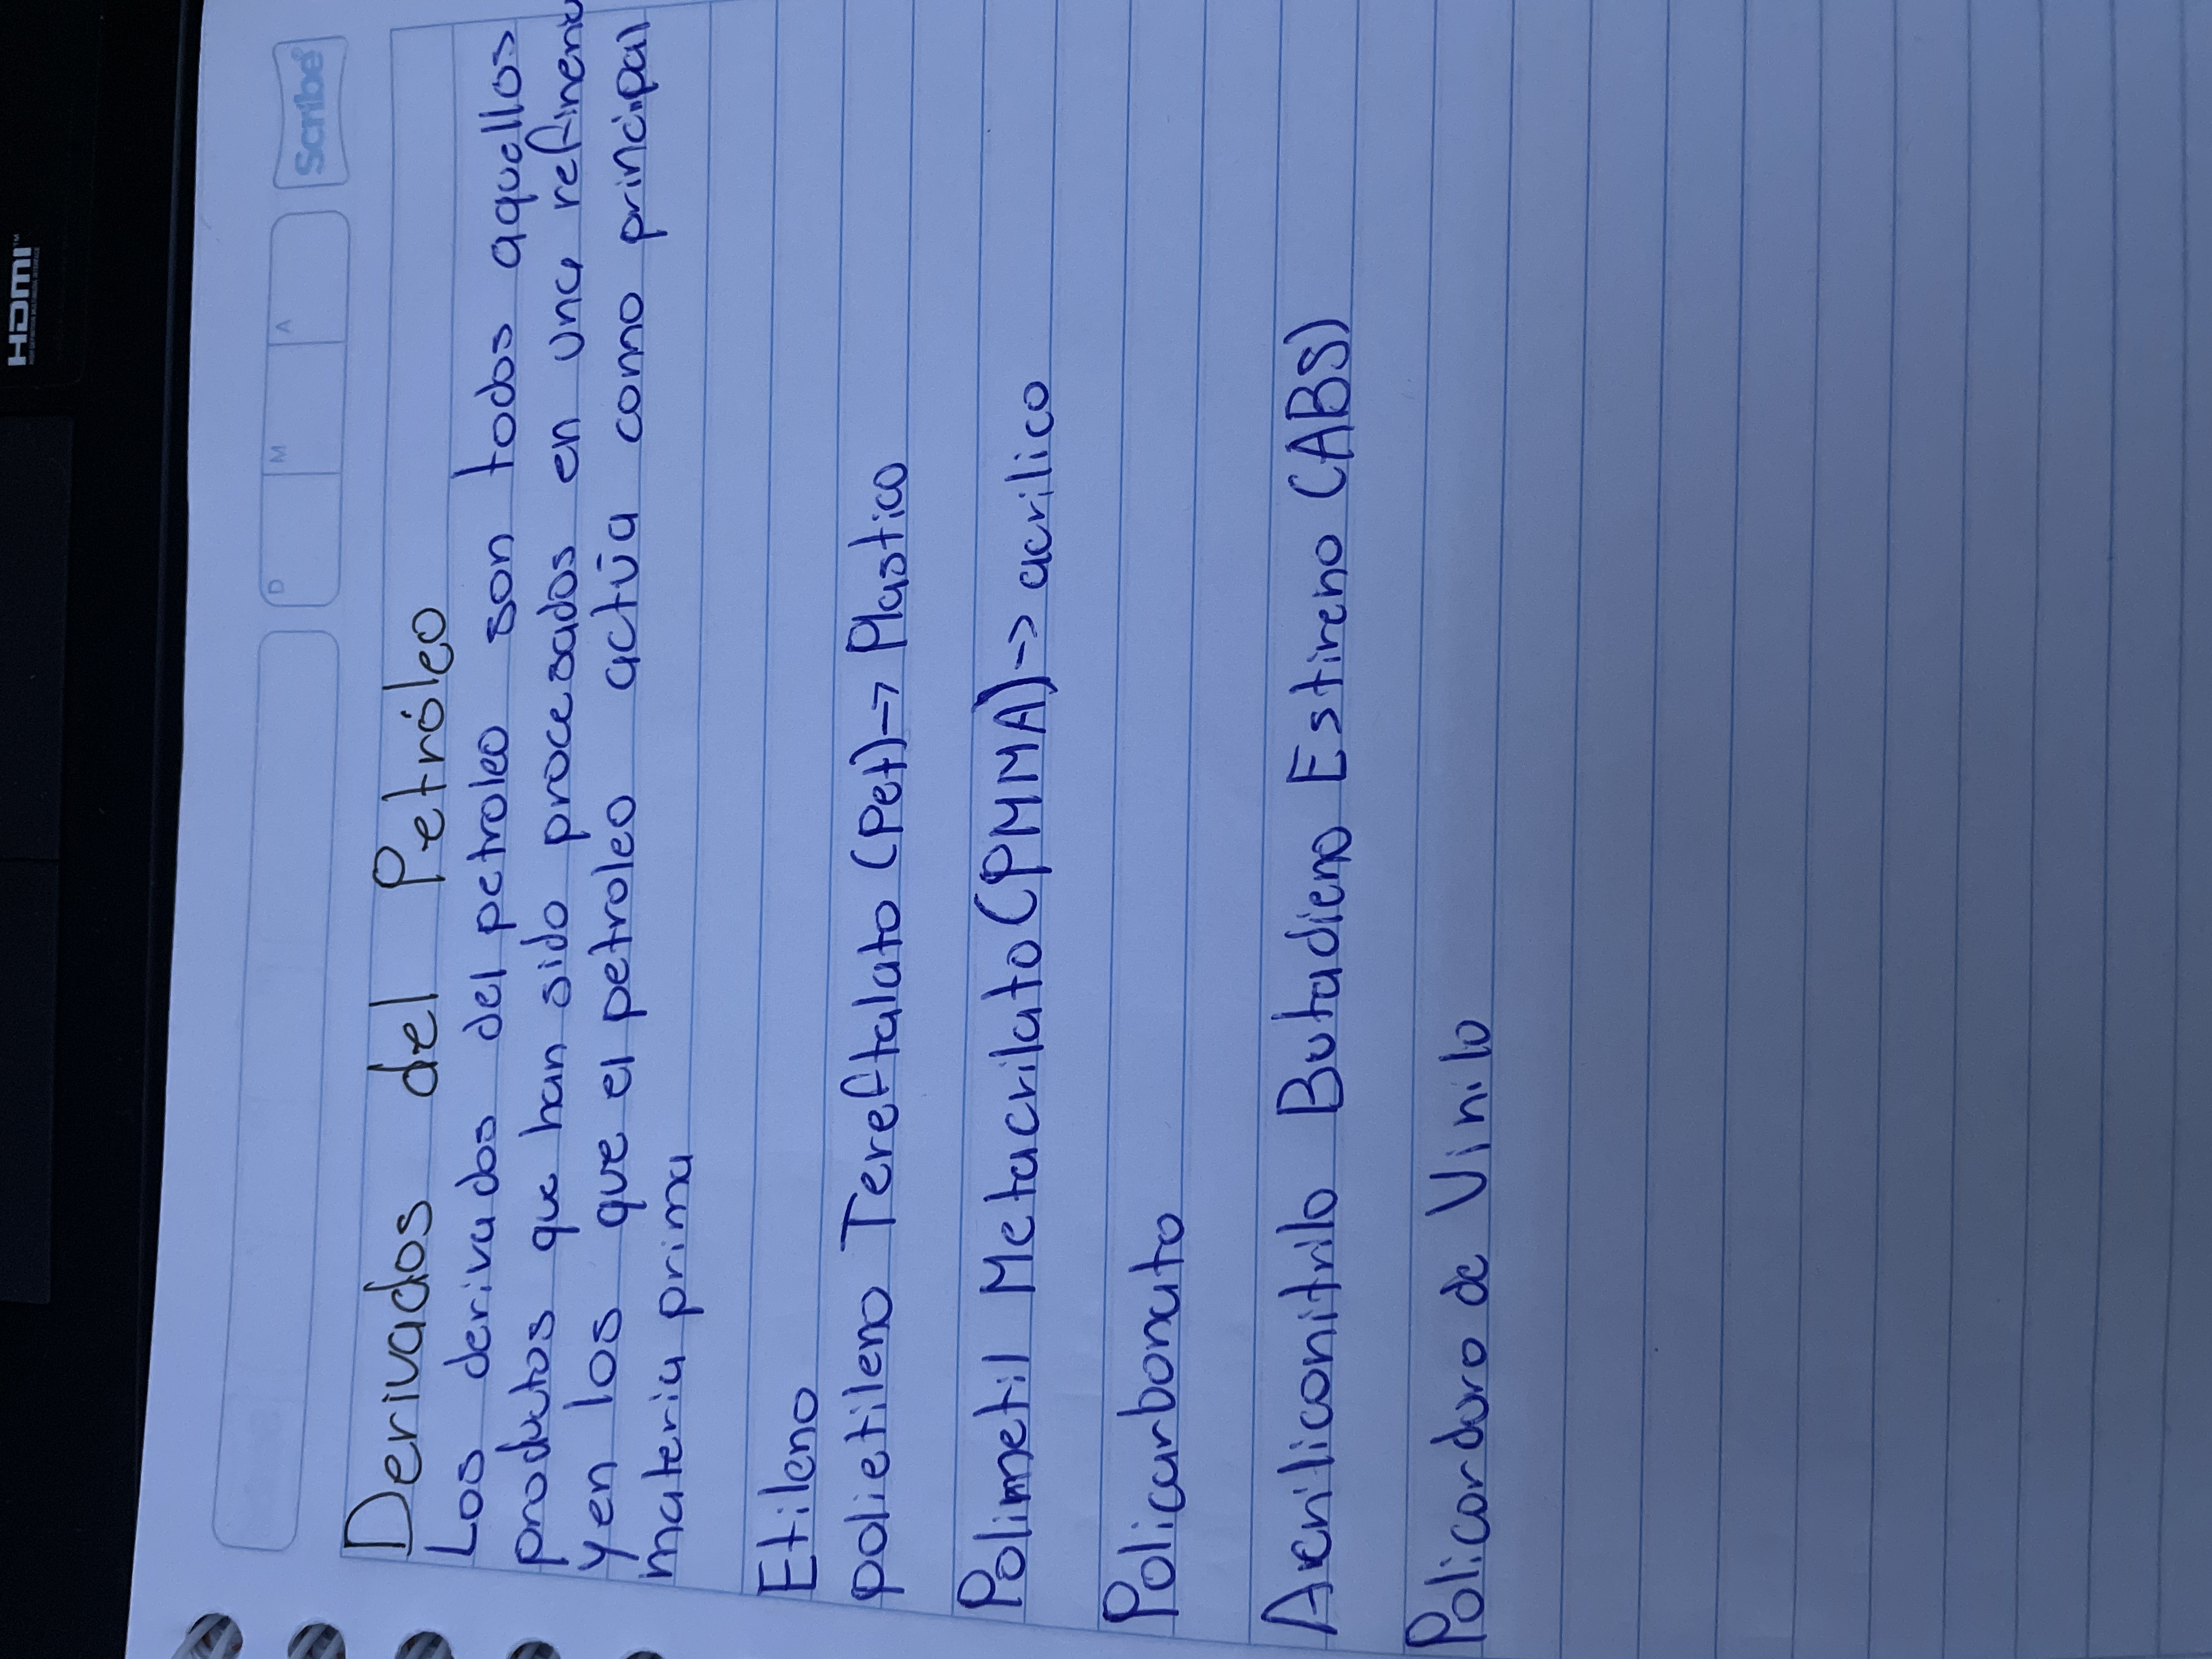 HDMI™
Scribe®
D M A
Derivados del Petróleo
Los derivados del petroleo son todos aquellos
productos que han sido procesados en una refineria
y en los que el petroleo actúa como principal
materia prima
Etileno
polietileno Tereftalato (Pet)-> Plastico
Polimetil Metacrilato (PMMA)-> acrilico
Policarbonato
Acriliconitrilo Butadieno Estireno (ABS)
Policorduro de Vinilo